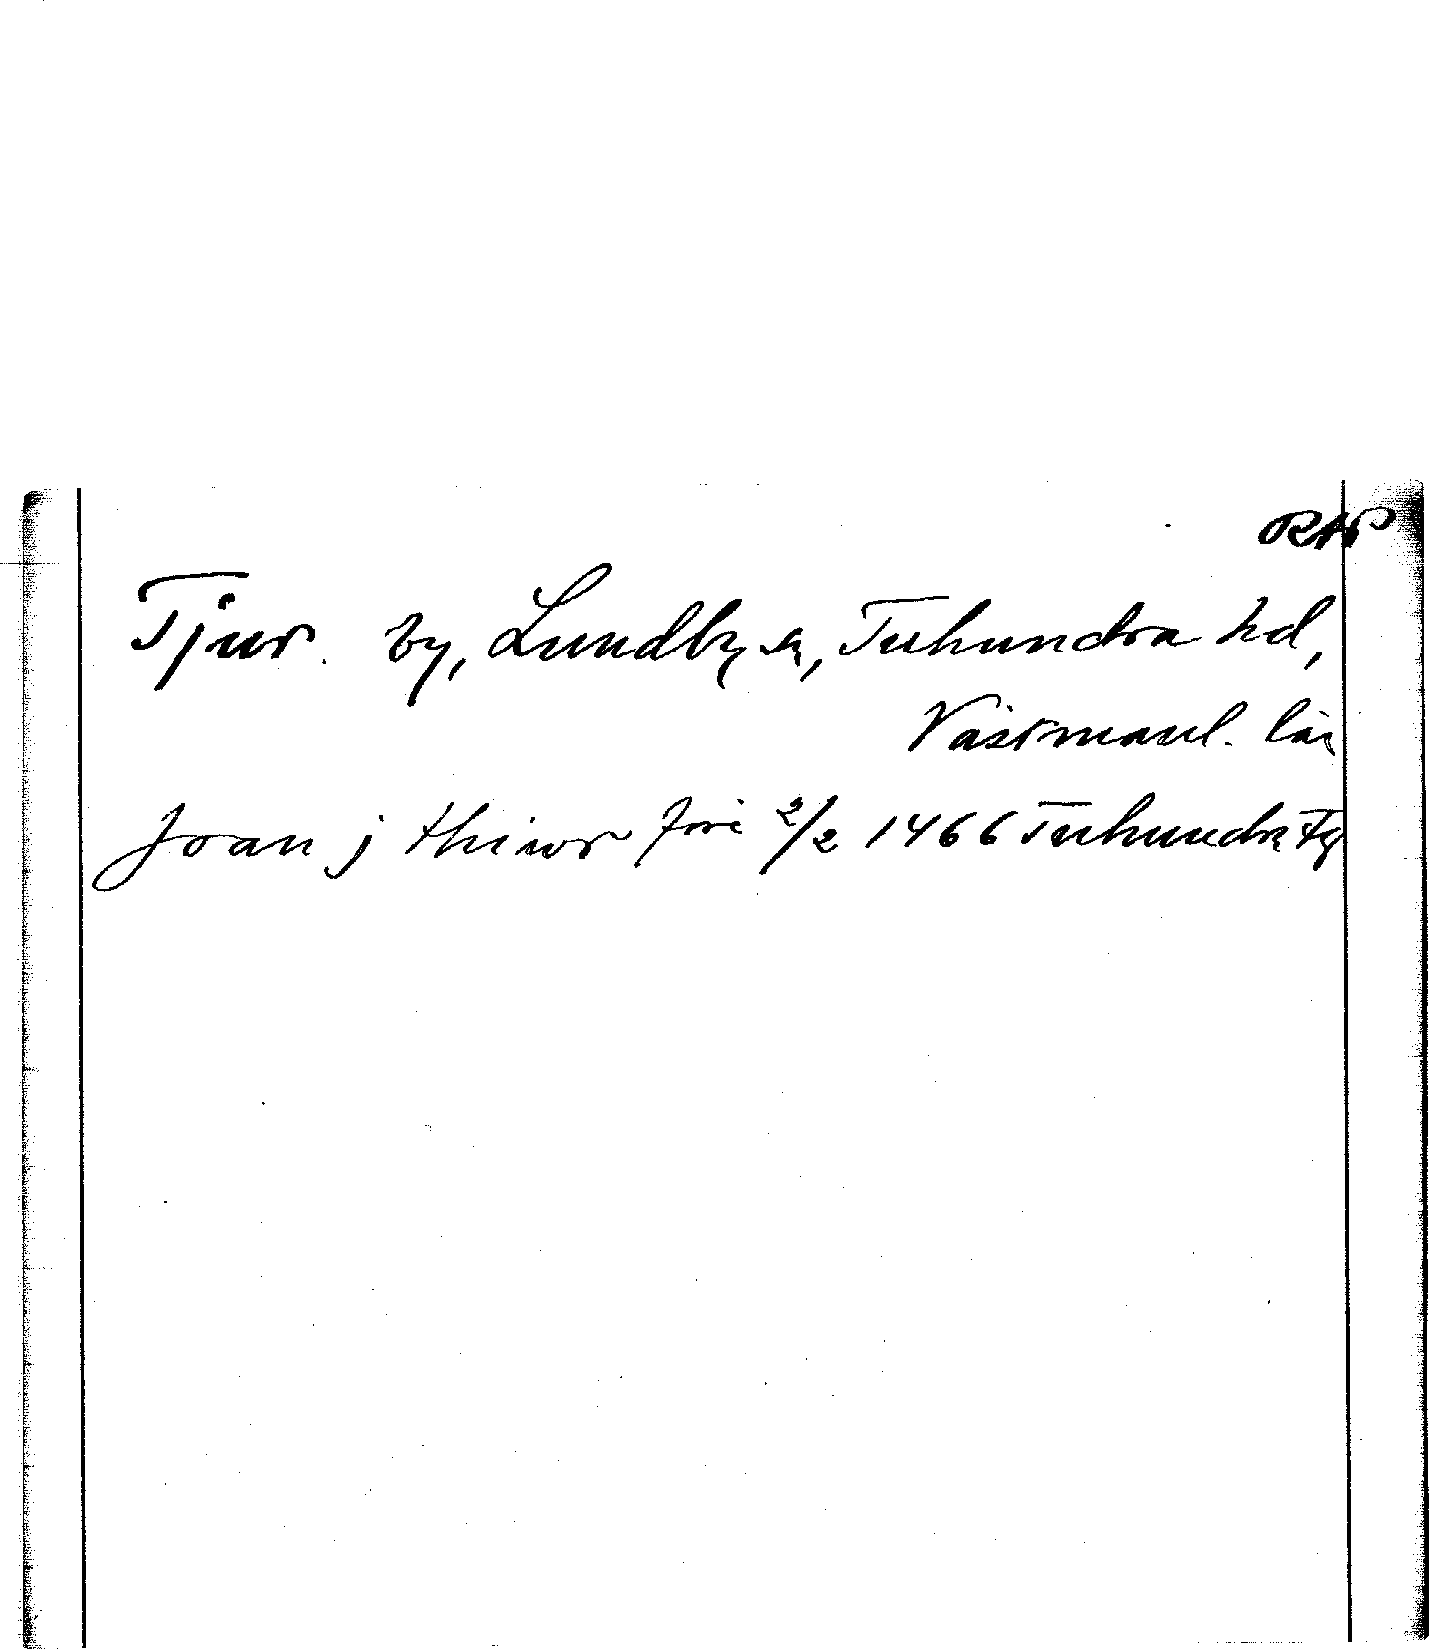 Tjur. by, Lundby sn, Tuhundra hd,
Västmanl. län
Joan j thiwr före 2/2 1466 Tuhundra